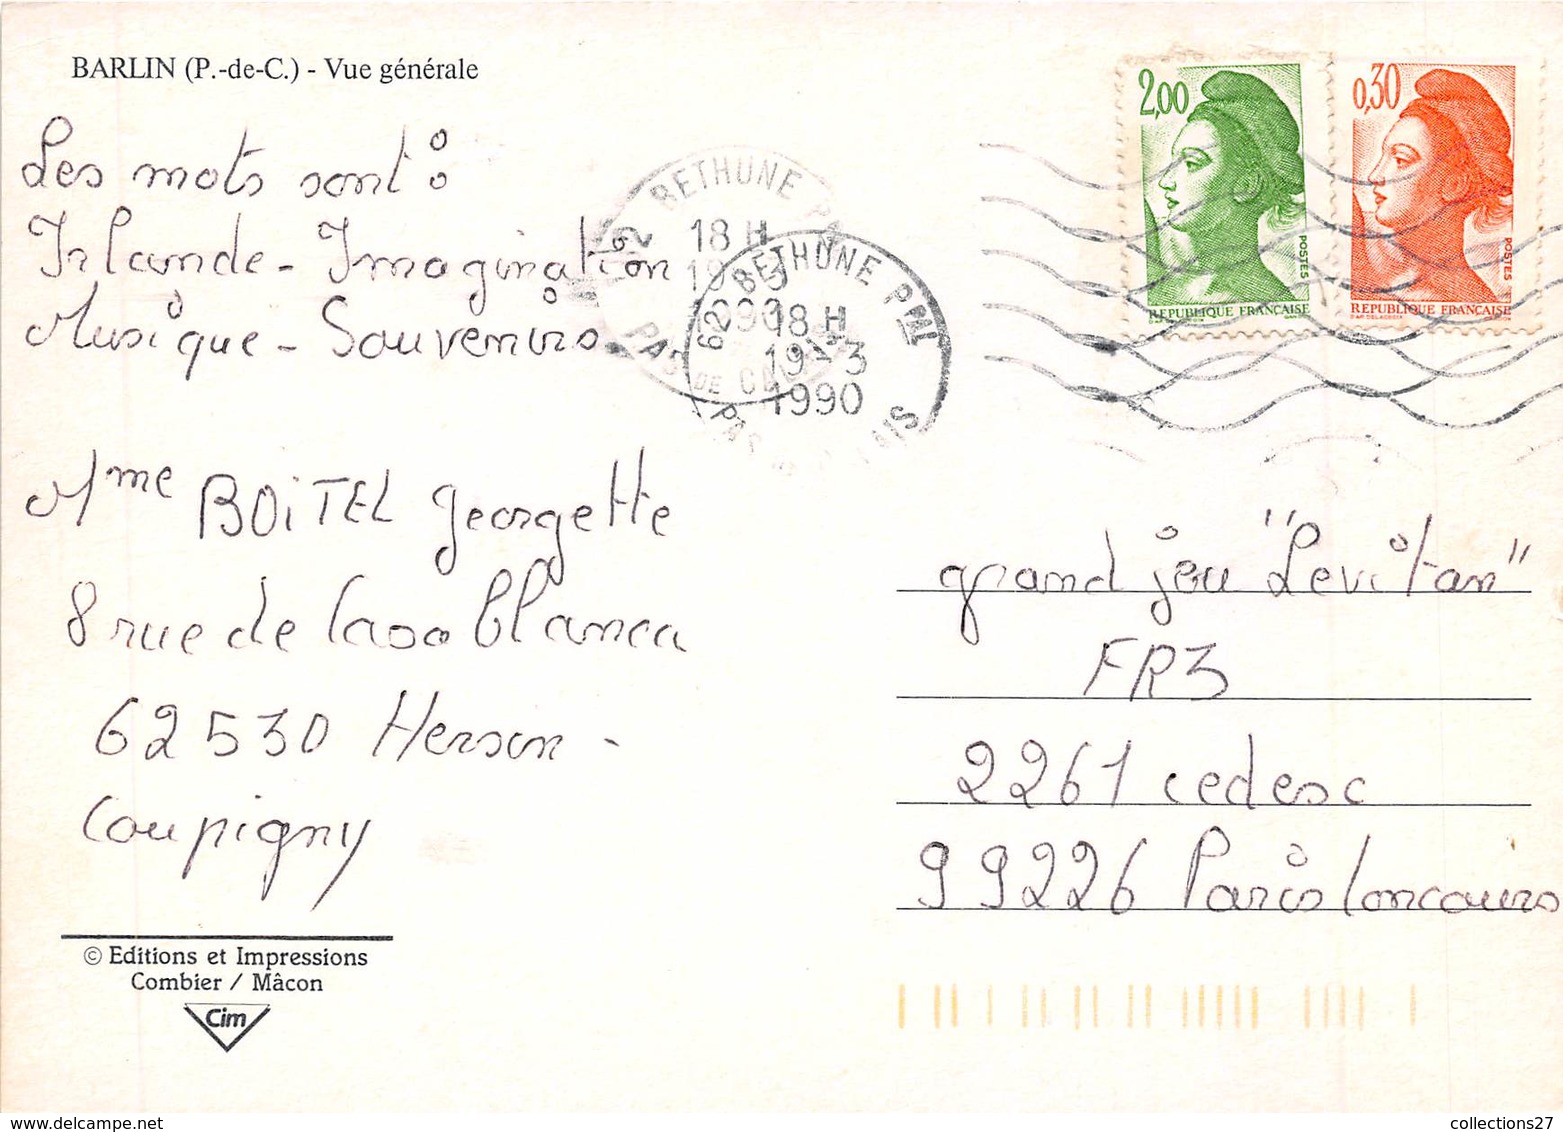 BARLIN (P.-de-C.) - Vue générale
Les mots sont :
Irlande - Imagination
Musique - Souvenirs
Mme BOiTEL georgette
8 rue de Casablanca
62530 Hersin -
Coupigny
© Editions et Impressions
Combier / Mâcon
Cim
62 BETHUNE
18 H
PAS DE CALAIS
62 BETHUNE PAL
18 H
19-3
1990
PAS DE CALAIS
2,00
POSTES
REPUBLIQUE FRANÇAISE
0,30
POSTES
REPUBLIQUE FRANÇAISE
grand jeu "Levitan"
FR3
2261 cedesc
99226 Paris Concours
collections27